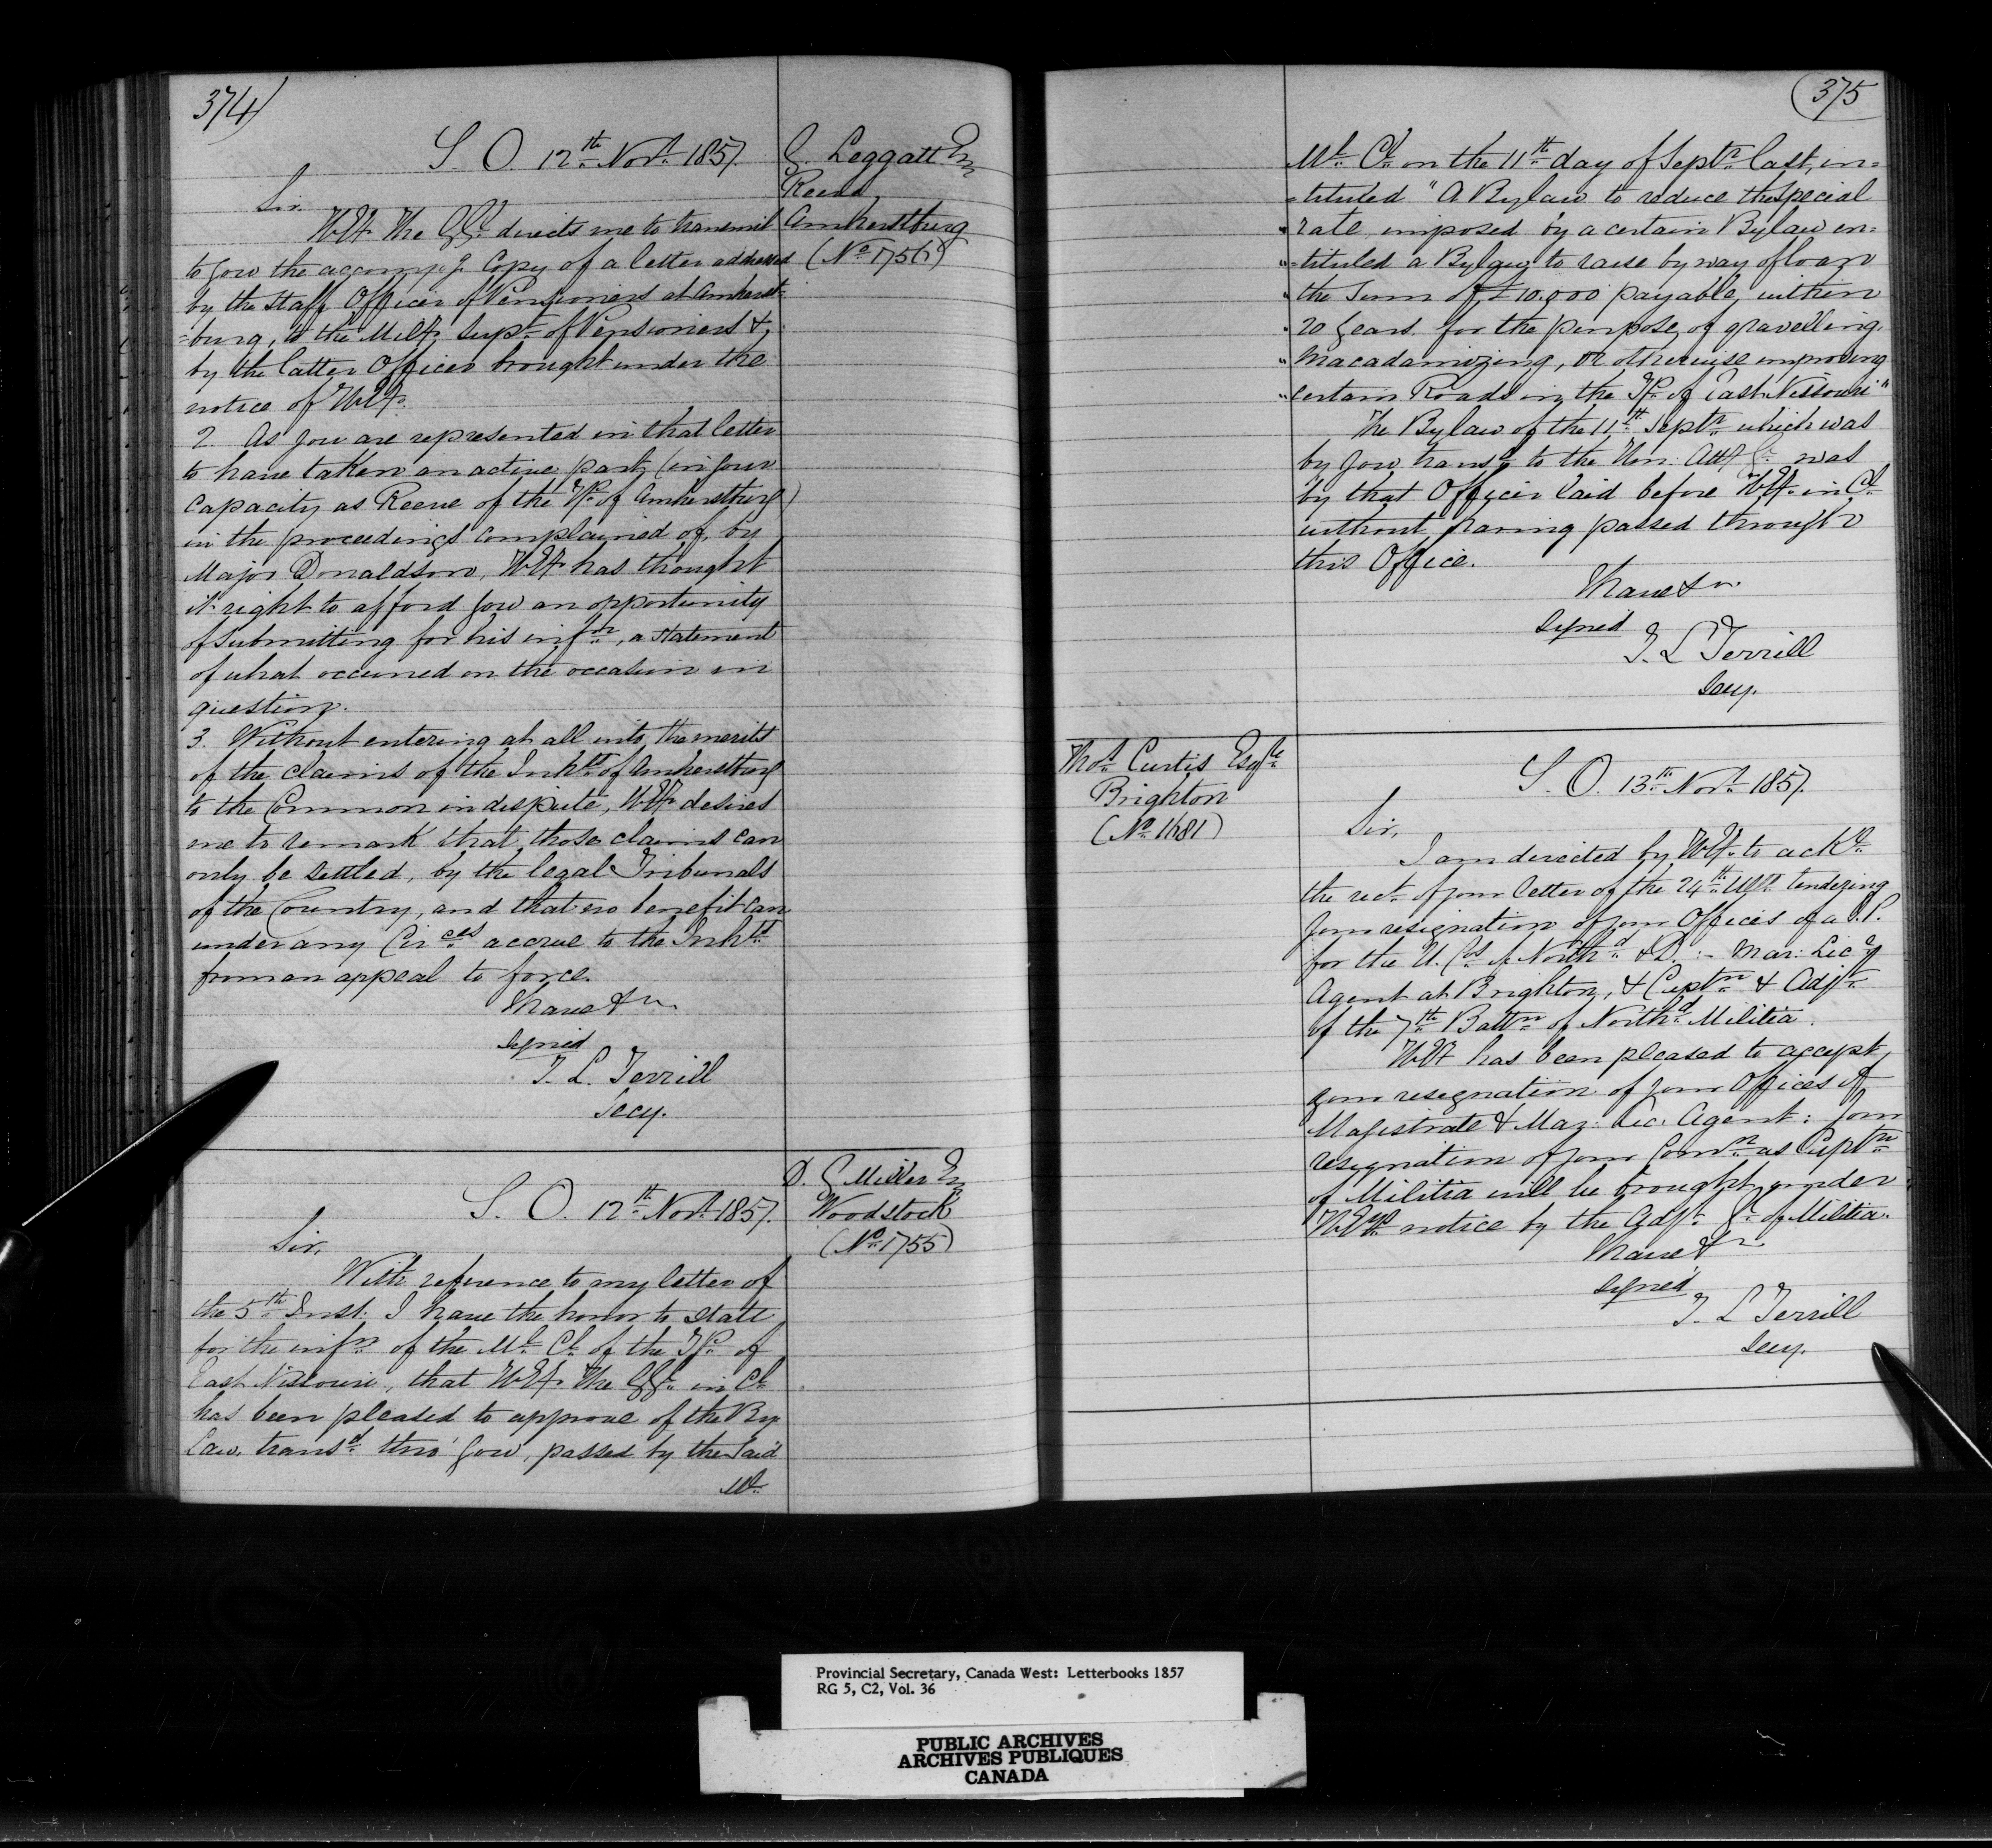 374)
S. O. 12th Novr 1857.
G. Leggatt Esq
Reeve
Amherstburg
(No 1756)
Sir.
H.E. The G.G. directs me to transmit
to you the accompg Copy of a letter addressed
by the Staff Officer of Pensioners at Amherst-
-burg, to the Mily Supt of Pensioners &
by the latter Officer brought under the
notice of H.Ey.
2. As you are represented in that letter
to have taken an active part, (in your
capacity as Reeve of the Tp of Amherstburg)
in the proceedings complained of, by
Major Donaldson, H.Ey has thought
it right to afford you an opportunity
of submitting for his infn, a statement
of what occurred on the occasion in
question.
3. Without entering at all into the merits
of the claims of the Inhts of Amherstburg
to the Common in dispute, H.Ey desires
me to remark that those claims can
only be settled, by the legal Tribunals
of the Country, and that no benefit can
under any Circes accrue to the Inhts
from an appeal to force.
I have &c
Signed
T. L. Terrill
Secy.
S. O. 12th Novr 1857.
D. G Miller Esq
Woodstock
(No 1755)
Sir,
With reference to my letter of
the 5th Inst. I have the honor to state
for the infn of the Ml Cl of the Tp of
East Nissouri, that H.Ey The G.G. in Cl
has been pleased to approve of the By
Law, transd thro' you, passed by the said
Ml
375
Ml Cl on the 11th day of Septr last, in=
=tituled "A Bylaw to reduce the special
"rate imposed by a certain Bylaw en=
"=tituled a Bylaw to raise by way of loan
"the Sum of £10.000 payable within
"20 years for the purpose of gravelling
"Macadamizing, or otherwise improving
"certain Roads in the Tp of East Nissouri"
The Bylaw of the 11th Septr which was
by you transd to the Hon: Atty Gl was
by that Officer laid before H.Ey in Cl
without having passed through
this Office.
I have &c
Signed
T. L Terrill
Secy.
Thos Curtis Esqre
Brighton
(No 1681)
S. O. 13th Novr 1857.
Sir,
I am directed by H.Ey to acke
the rect of your letter of the 24th Ulto tendering
your resignation of your Offices of a J.P.
for the U. Cos of Northd & D. :- Mar: Licg
Agent at Brighton, & Captn & Adjt
of the 7th Battn of Northd Militia.
H.Ey has been pleased to accept
your resignation of your Offices of
Magistrate & Mar: Lic. Agent: your
resignation of your Comn as Captn
of Militia will be brought under
H.Eys notice by the Adjt Gl of Militia.
I have &c
Signed
T. L Terrill
Secy.
Provincial Secretary, Canada West: Letterbooks 1857
RG 5, C2, Vol. 36
PUBLIC ARCHIVES
ARCHIVES PUBLIQUES
CANADA